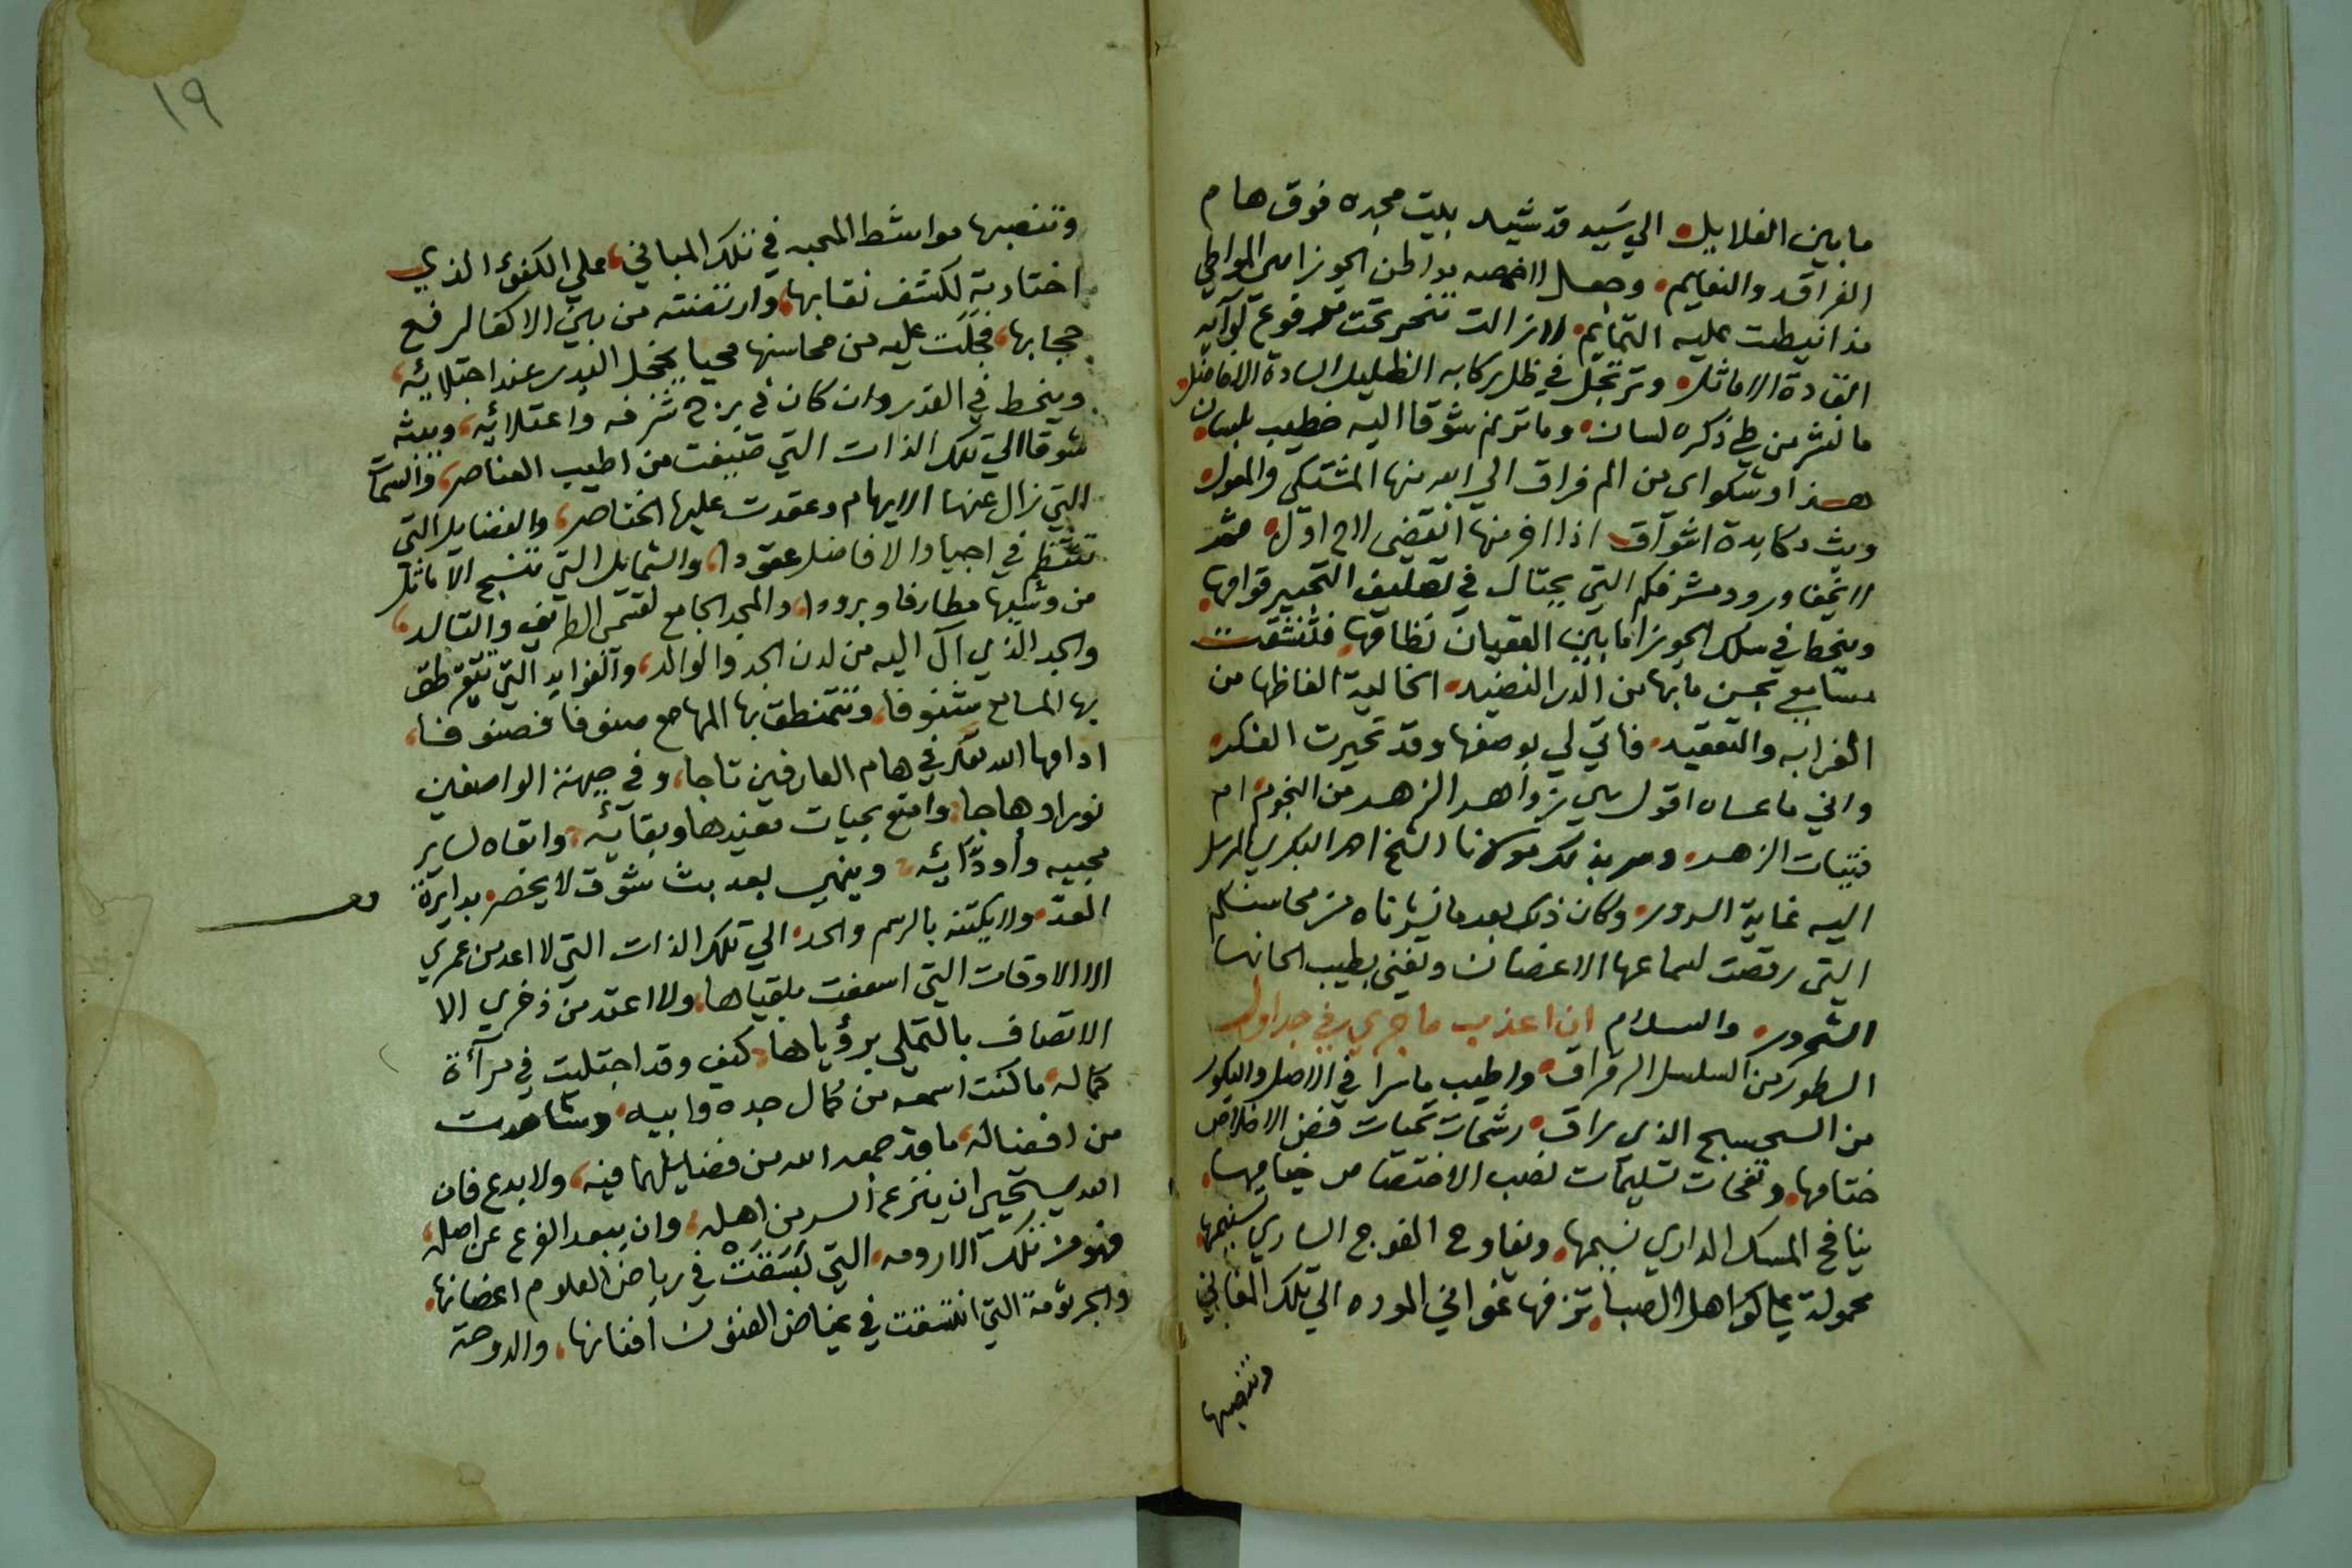 ما بين الغلايل الي سَيد قد شيد بيت مجده فوق هام
الفراقد والنعايم وجعل لاخمصه بواطن الجوزا من المواطي
مذ انيطت عليه التمائم لازالت تنحر تحت مرفوع لوآيه
القادة الاماثل وترتجل في ظل ركابه الظليل السادة الافاضل
ما نشر من طي ذكره لسان وما ترنم شوقا اليه خطيب بلسان
هذا وشكواى من الم فراق الي الله منها المشتكى والمعول
وبث مكابدة اشوآق اذا اخر منها انقضى لاح اوّل
لا يخفا ورود مشرفكم التي يحتال في تصليف التحبير قوامها
وينحط في سلك الجوزا ما بين العقيان نظامها فتشنفت
مسامعي بحسن ما بها من الدر النضيد الخالية الفاظها من
الغرابه والتعقيد فاتي لي بوصفها وقد تحيرت الفكر
واني ما عساه اقول من زواهد الزهد من النجوم ام
فتيات الزهد وسر بذلك مولانا الشيخ احمد البكري المرسل
اليه غاية السرور وكان ذلك بعدما نشرناه من محاسنكم
التي رقصت لسماعها الاغصان وتغنى بطيب الحانها
الشحرور والسلام ان اعذب ما جري في جداول
السطور من السلسل الرقراق واطيب ما سرا في الاصل والبكور
من السجسج الذي راق رشحات تحيات فض الاخلاص
ختامها ونفحات تسليمات نصب الاختصاص خيامها
ينافح المسك الداري نسيمها ويفاوح الفوح الساري شميمها
محمولة علي كواهل الصبا تزفها غواني الموده الي تلك المغاني
وتنصبها
١٩
وتنصبها مواشط المحبه في تلك المباني علي الكفؤ الذي
اختارته لكشف نقابها وارتضته من بين الاكفا لرفع
حجابها فجلت عليه من محاسنها محيا يخجل البدر عند اجتلايه
وينحط في القدر وان كان في برج شرفه واعتلائه ويبثه
شوقا الي تلك الذات التي صيغت من اطيب العناصر والسمات
التي زال عنها الايهام وعقدت عليها الخناصر والفضايل التي
تنتظم في اجياد الافاضل عقودا والشمايل التي تنسج الاماثل
من وشيها مطارفا وبرودا والمجد الجامع لقسمى الطريف والتالد
والجد الذي آل اليه من لدن الجد والوالد والفوايد التي تتقرطق
بها المسامع شنوفا وتتمنطق بها المهامع صنوفا فصنوفا
ادامها الله تعالى في هام العارفين تاجا وفي جبهة الواصفين
نورا وهاجا وامتع بحيات مفيدها وبقآئه وابقاه لساير
محبيه وأودّائه وينهي بعد بث شوق لا يحصر بدايرة
العد ولا يكتنه بالرسم والحد الي تلك الذات التي لا اعد من عمري
الا الاوقات التي اسعفت بلقياها ولا اعتد من ذخري الا
الاتصاف بالتملي برؤياها كيف وقد اجتليت في مرآة
كماله ما كنت اسمعه من كمال جده وابيه وشاهدت
من افضاله ما قد جمعه الله من فضايلهما فيه ولا بدع فان
الله يستحيي ان ينزع السر من اهله وان يبعد الفرع عن اصله
فهو من تلك الارومه التي بَسَقَتْ في رياض العلوم اغصانها
والجرثومة التي اتسقت في غياض الفنون افنانها والدوحة